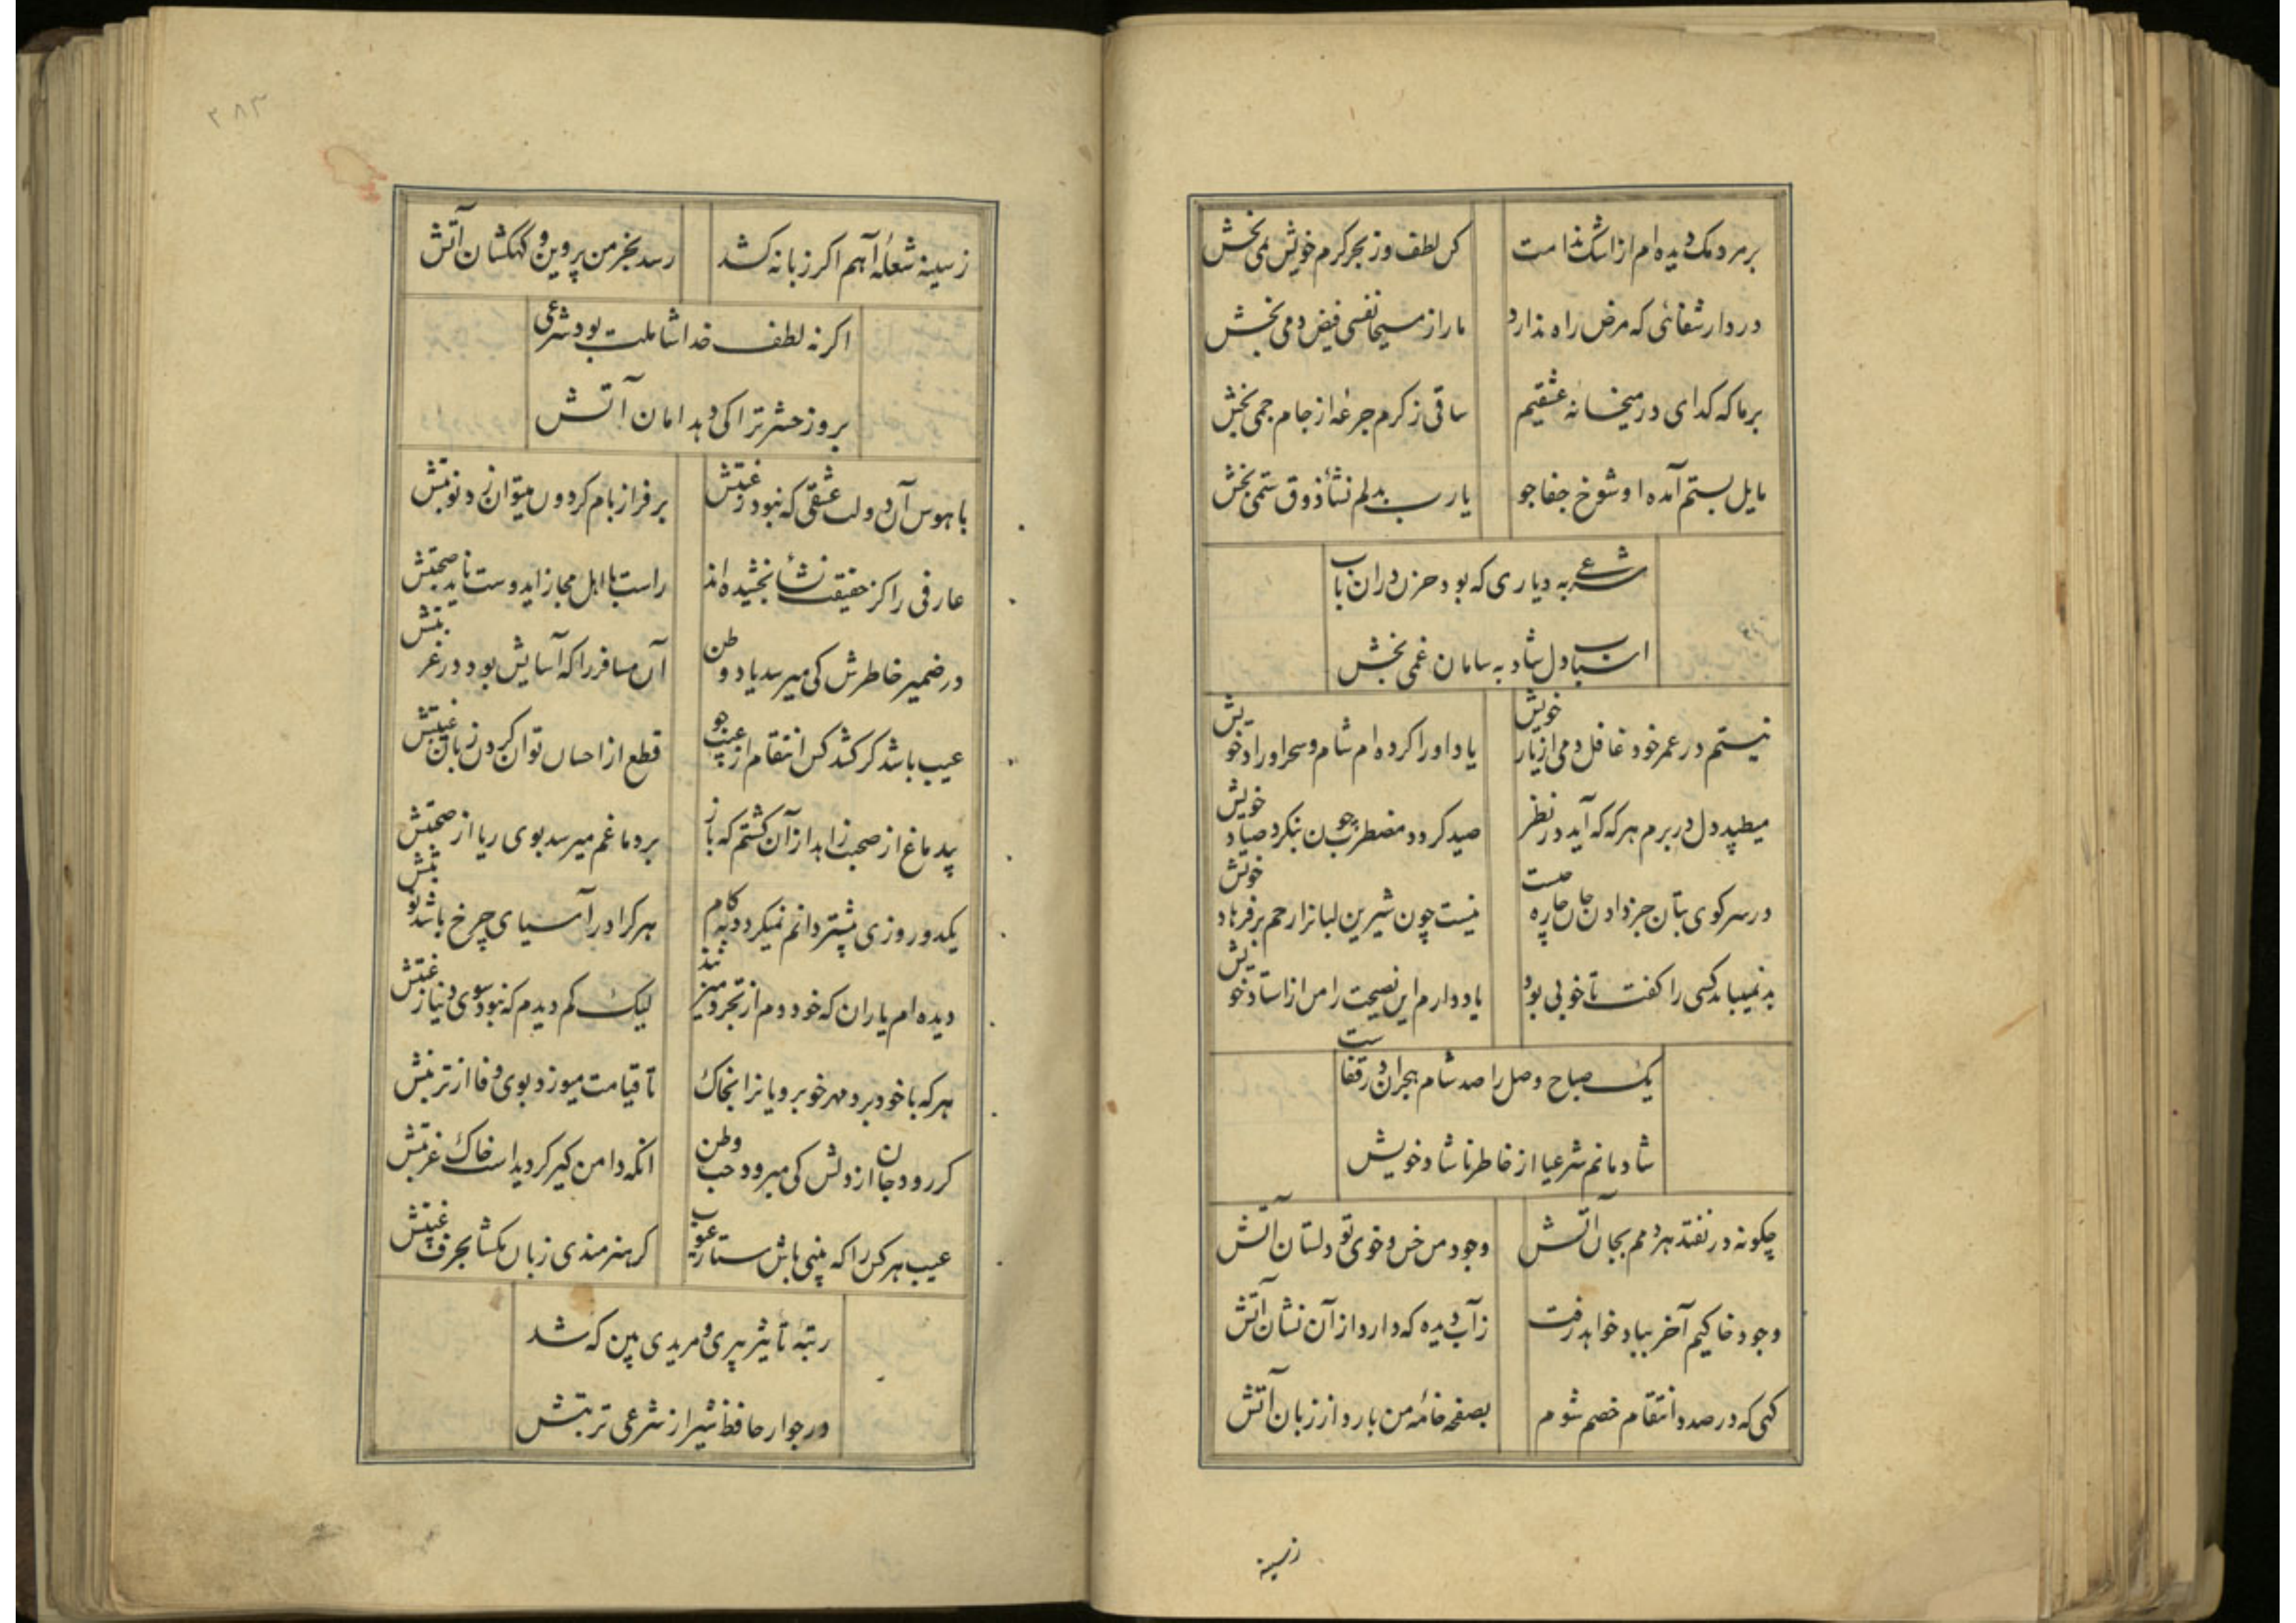 بر مردمک دیده ام از اشک ندامت کن لطف وز بحر کرم خویش نمی بخش
در دار شفائی که مرض راه ندارد ما را ز مسیحا نفسی فیض دمی بخش
بر ما که کدای در میخانه عشقیم ساقی ز کرم جرعه از جام جمی بخش
مایل بستم آمده او شوخ جفاجو یارب بدلم نشأ ذوق ستمی بخش
شرعی به دیاری که بود حزن دران باب
اسباب دل شاد به سامان غمی بخش
نیستم در عمر خود غافل دمی از یار خویش یاد او را کرده ام شام و سحر اوراد خویش
میطپد دل در برم هر که که آید در نظر صید کردد مضطرب چون بنکرد صیاد خویش
در سر کوی بتان جز دادن جان چاره چیست نیست چون شیرین لبانرا رحم بر فرهاد خویش
بد نمیباید کسی را کفت تا خوبی بود یاد دارم این نصیحت را من از استاد خویش
یک صباح وصل را صد شام هجران در قفاست
شادمانم شرعیا از خاطر ناشاد خویش
چکونه در نفتد هر دمم بجان آتش وجود من خس و خوی تو دلستان آتش
وجود خاکیم آخر بباد خواهد رفت ز آب دیده که دارد از آن نشان آتش
کهی که در صدد انتقام خصم شوم بصفحه خامه من بارد از زبان آتش
زسینه
۲۸۳
ز سینه شعله آهم اکر زبانه کشد رسد بخرمن پروین و کهکشان آتش
اکر نه لطف خدا شاملت بود شرعی
بروز حشر ترا کی دهد امان آتش
با هوس آن دولت عشقی که نبود رغبتش بر فراز بام کردون میتوان زد نوبتش
عارفی را کز حقیقت نشأ بخشیده اند راست با اهل مجاز ایدوست ناید صحبتش
در ضمیر خاطرش کی میرسد یاد وطن آن مسافر را که آسایش بود در غربتش
عیب باشد کر کشد کس انتقام از عیب جو قطع از احسان توان کردن زبان غیبتش
بیدماغ از صحبت زاهد از آن کشتم که باز بر دماغم میرسد بوی ریا از صحبتش
یکدو روزی بیشتر دانم نمیکردد به کام هر کرا در آسیای چرخ باشد نوبتش
دیده ام یاران که خود دم از تجرد میزنند لیک کم دیدم که نبود سوی دنیا رغبتش
هر که با خود برد مهر خوبرویانرا بخاک تا قیامت میوزد بوی وفا از تربتش
کر رود جان از دلش کی میرود حب وطن انکه دامن کیر کردید است خاک غربتش
عیب هر کس را که بینی باش ستار عیوب کر هنرمندی زبان مکشا بحرف غیبتش
رتبه تأثیر پیری و مریدی بین که شد
در جوار حافظ شیراز شرعی تربتش